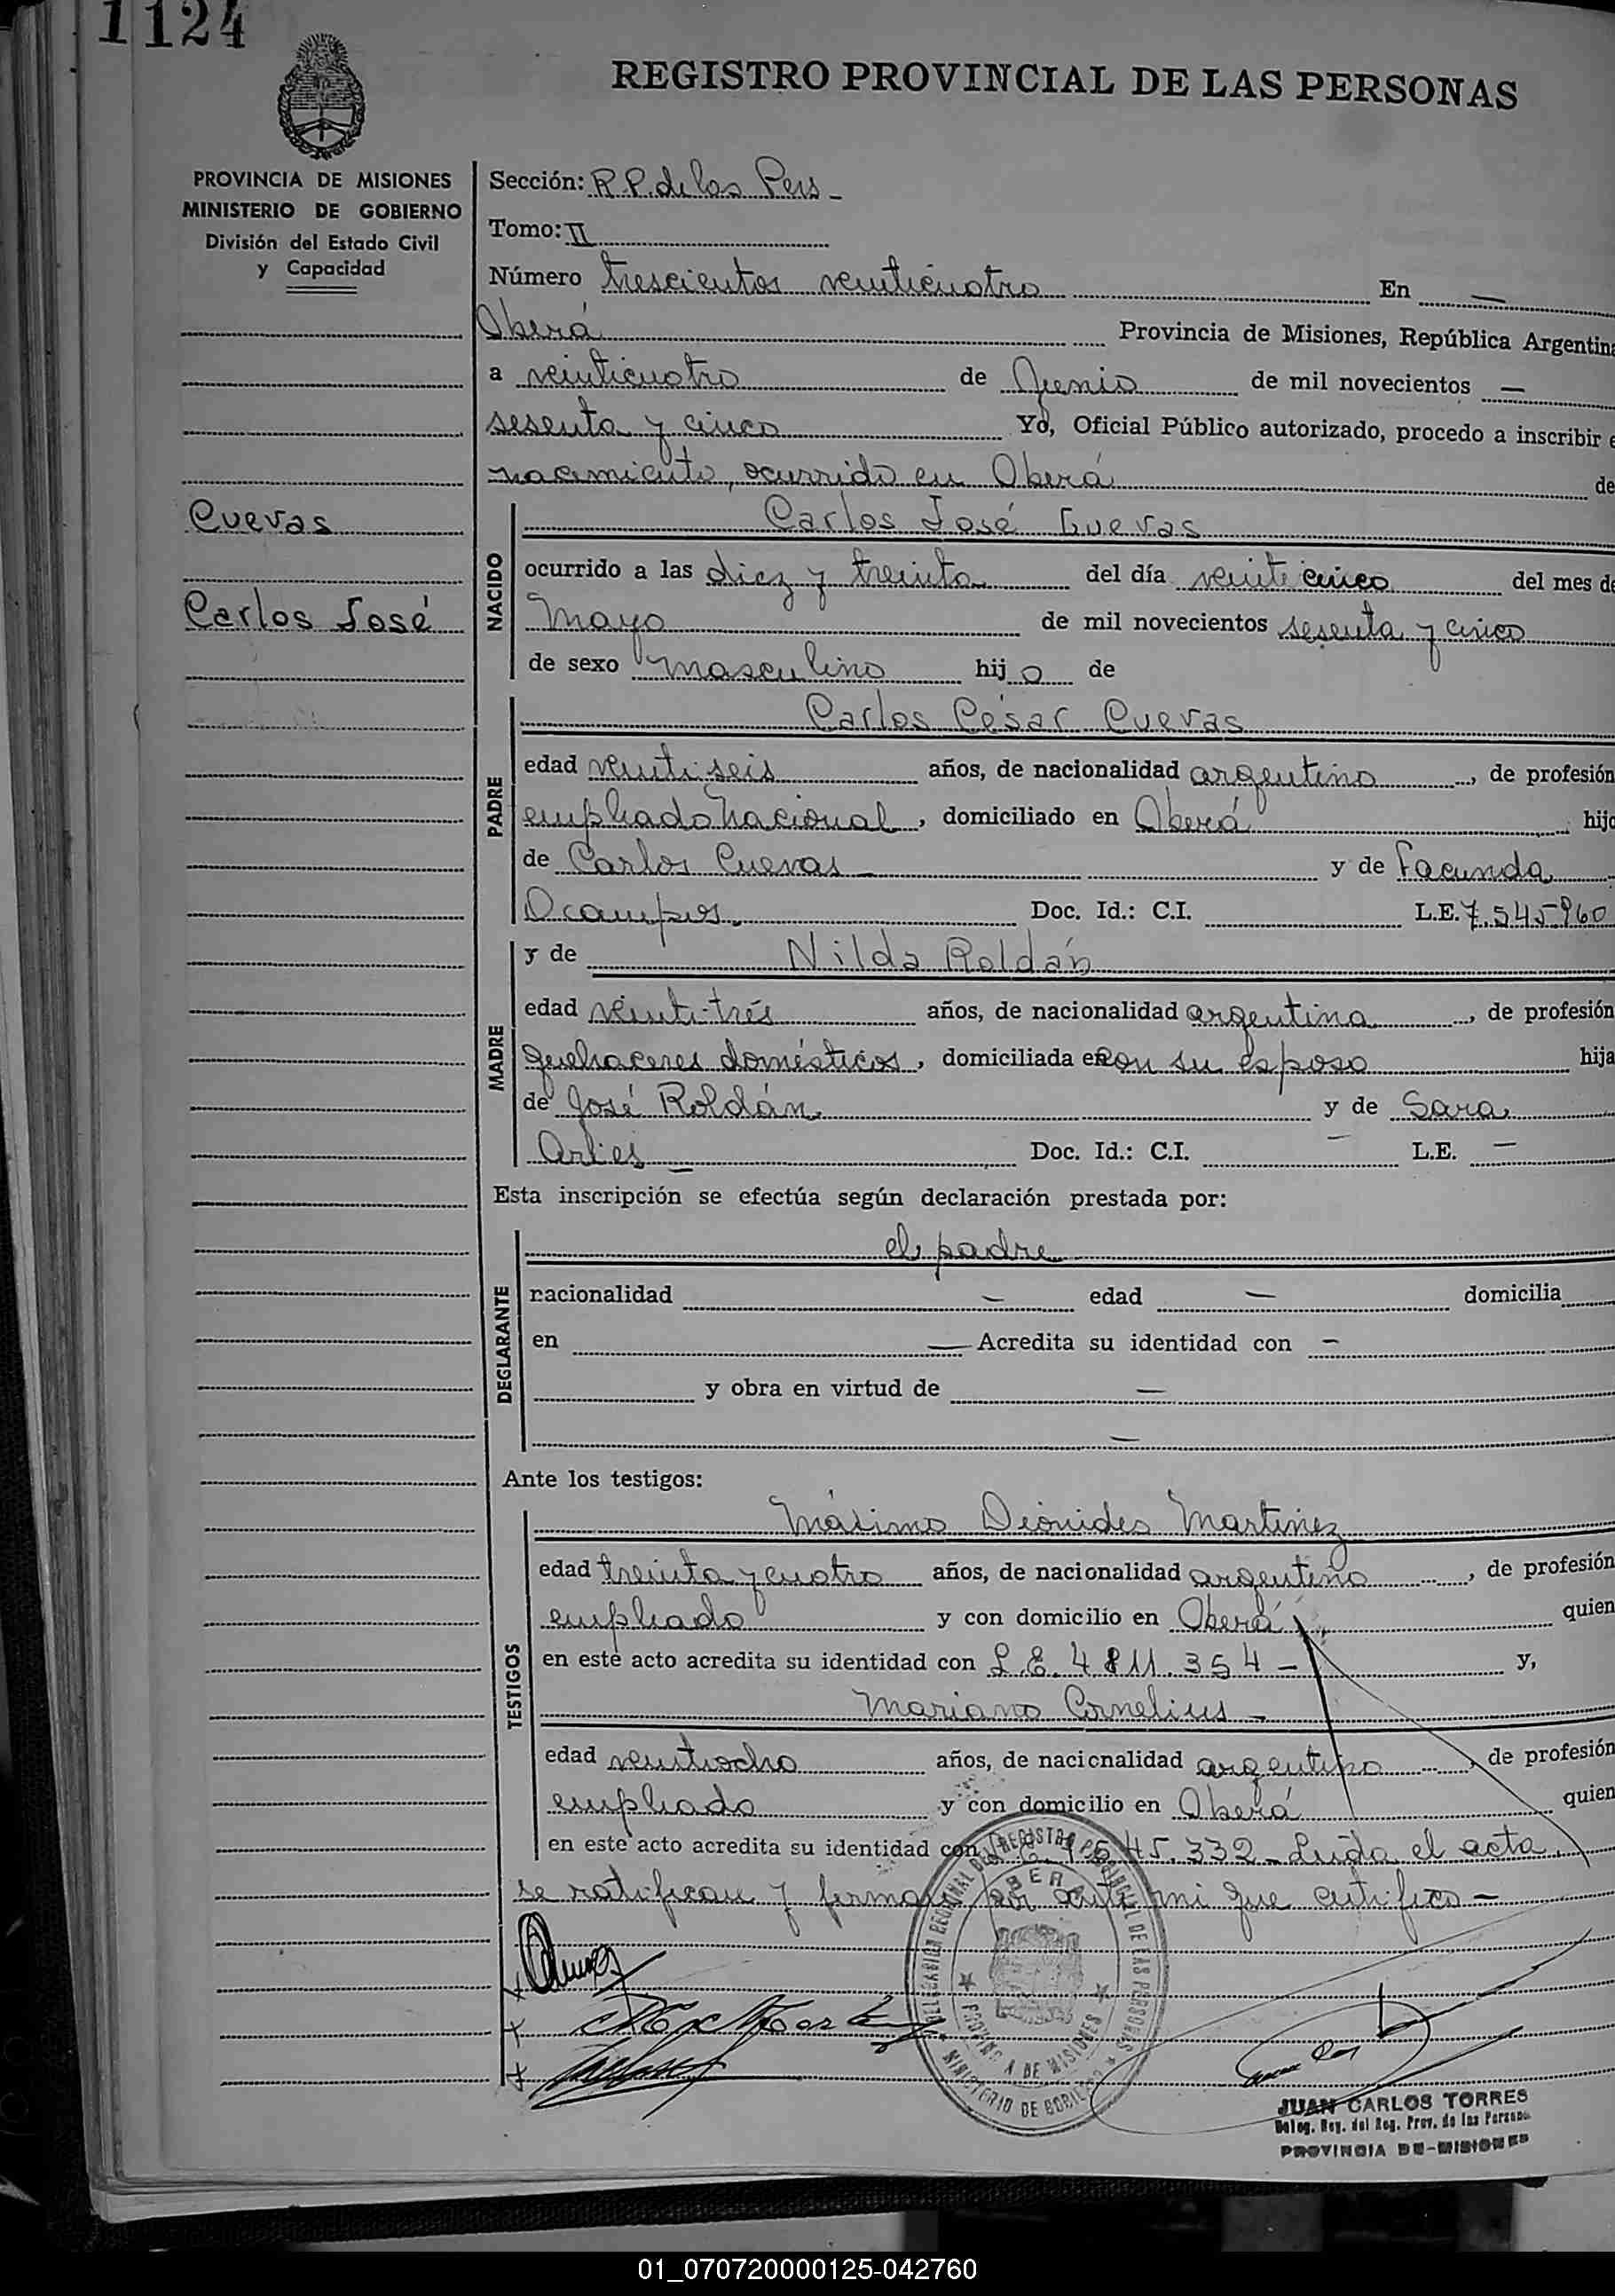 1124
REGISTRO PROVINCIAL DE LAS PERSONAS
PROVINCIA DE MISIONES
MINISTERIO DE GOBIERNO
División del Estado Civil
y Capacidad
Cuevas
Carlos José
Sección: R.P. de las Pers -
Tomo: II
Número trescientos veinticuatro En —
Oberá Provincia de Misiones, República Argentina
a veinticuatro de Junio de mil novecientos —
sesenta y cinco Yo, Oficial Público autorizado, procedo a inscribir e
nacimiento, ocurrido en Oberá de
NACIDO
Carlos José Cuevas
ocurrido a las diez y treinta del día veinticinco del mes de
Mayo de mil novecientos sesenta y cinco
de sexo masculino hijo de
PADRE
Carlos César Cuevas
edad veintiseis años, de nacionalidad argentino, de profesión
empleado Nacional, domiciliado en Oberá hijo
de Carlos Cuevas — y de Facunda
Ocampos. Doc. Id.: C.I. L.E. 7.545960
MADRE
y de Nilda Roldán
edad veinti-trés años, de nacionalidad argentina, de profesión
quehaceres domésticos, domiciliada en con su esposo hija
de José Roldán y de Sara
Doc. Id.: C.I. — L.E. —
Esta inscripción se efectúa según declaración prestada por:
DEGLARANTE
el padre
nacionalidad — edad — domicilia
en — Acredita su identidad con —
y obra en virtud de —
—
Ante los testigos:
TESTIGOS
Máximo Martinez
edad treinta y cuatro años, de nacionalidad argentino, de profesión
empleado y con domicilio en Oberá quien
en este acto acredita su identidad con L.E. 4.811.354 - y,
Mariano Cornelius -
edad veintiocho años, de nacionalidad argentino, de profesión
empleado y con domicilio en Oberá quien
en este acto acredita su identidad con 45.332 - Leida el acta
se ratifican y firman por ante mi que certifico -
DELEGACION REGIONAL DEL REGISTRO PROVINCIAL DE LAS PERSONAS
OBERA
PROVINCIA DE MISIONES
MINISTERIO DE GOBIERNO
JUAN CARLOS TORRES
Deleg. Reg. del Reg. Prov. de las Personas
PROVINCIA DE MISIONES
01_070720000125-042760